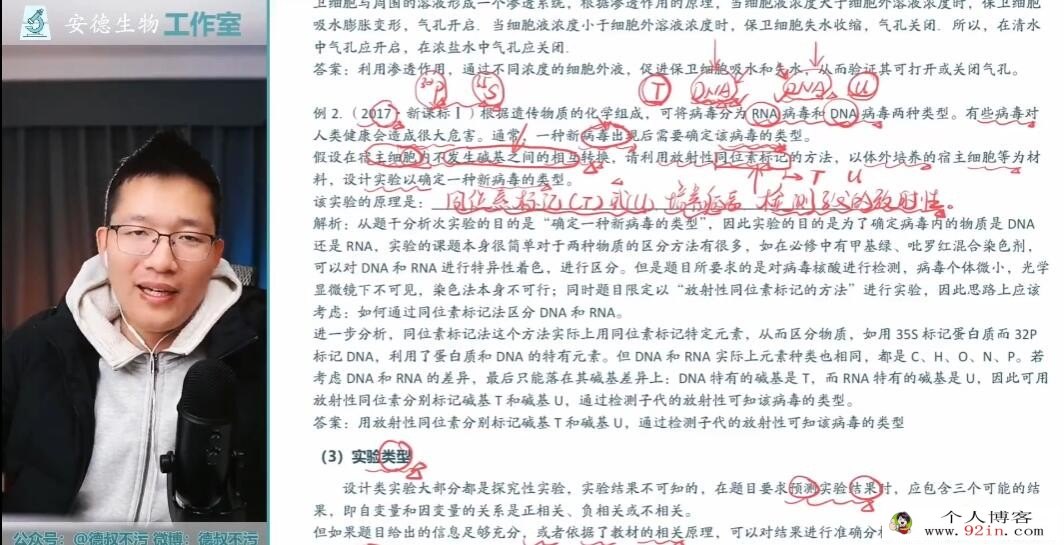 安德生物 工作室
卫细胞与周围的溶液形成一个渗透系统，根据渗透作用的原理，当细胞液浓度大于细胞外溶液浓度时，保卫细胞
吸水膨胀变形，气孔开启．当细胞液浓度小于细胞外溶液浓度时，保卫细胞失水收缩，气孔关闭．所以，在清水
中气孔应开启，在浓盐水中气孔应关闭．
答案：利用渗透作用，通过不同浓度的细胞外液，促进保卫细胞吸水和失水，从而验证其可打开或关闭气孔。
32P 35S T DNA RNA U
例 2.（2017·新课标Ⅰ）根据遗传物质的化学组成，可将病毒分为 RNA 病毒和 DNA 病毒两种类型。有些病毒对
人类健康会造成很大危害。通常，一种新病毒出现后需要确定该病毒的类型。
假设在宿主细胞内不发生碱基之间的相互转换，请利用放射性同位素标记的方法，以体外培养的宿主细胞等为材
料，设计实验以确定一种新病毒的类型。
T U
该实验的原理是： 同位素标记(T)或U 培养病毒 检测子代的放射性。
解析：从题干分析次实验的目的是“确定一种新病毒的类型”，因此实验的目的是为了确定病毒内的物质是 DNA
还是 RNA，实验的课题本身很简单对于两种物质的区分方法有很多，如在必修中有甲基绿、吡罗红混合染色剂，
可以对 DNA 和 RNA 进行特异性着色，进行区分。但是题目所要求的是对病毒核酸进行检测，病毒个体微小，光学
显微镜下不可见，染色法本身不可行；同时题目限定以“放射性同位素标记的方法”进行实验，因此思路上应该
考虑：如何通过同位素标记法区分 DNA 和 RNA。
进一步分析，同位素标记法这个方法实际上用同位素标记特定元素，从而区分物质，如用 35S 标记蛋白质而 32P
标记 DNA，利用了蛋白质和 DNA 的特有元素。但 DNA 和 RNA 实际上元素种类也相同，都是 C、H、O、N、P。若
考虑 DNA 和 RNA 的差异，最后只能落在其碱基差异上：DNA 特有的碱基是 T，而 RNA 特有的碱基是 U，因此可用
放射性同位素分别标记碱基 T 和碱基 U，通过检测子代的放射性可知该病毒的类型。
答案：用放射性同位素分别标记碱基 T 和碱基 U，通过检测子代的放射性可知该病毒的类型
（3）实验类型
设计类实验大部分都是探究性实验，实验结果不可知的，在题目要求预测实验结果时，应包含三个可能的结
果，即自变量和因变量的关系是正相关、负相关或不相关。
但如果题目给出的信息足够充分，或者依据了教材的相关原理，可以对结果进行准确分
公众号：@德叔不污 微博：德叔不污
个人博客
www.92in.com